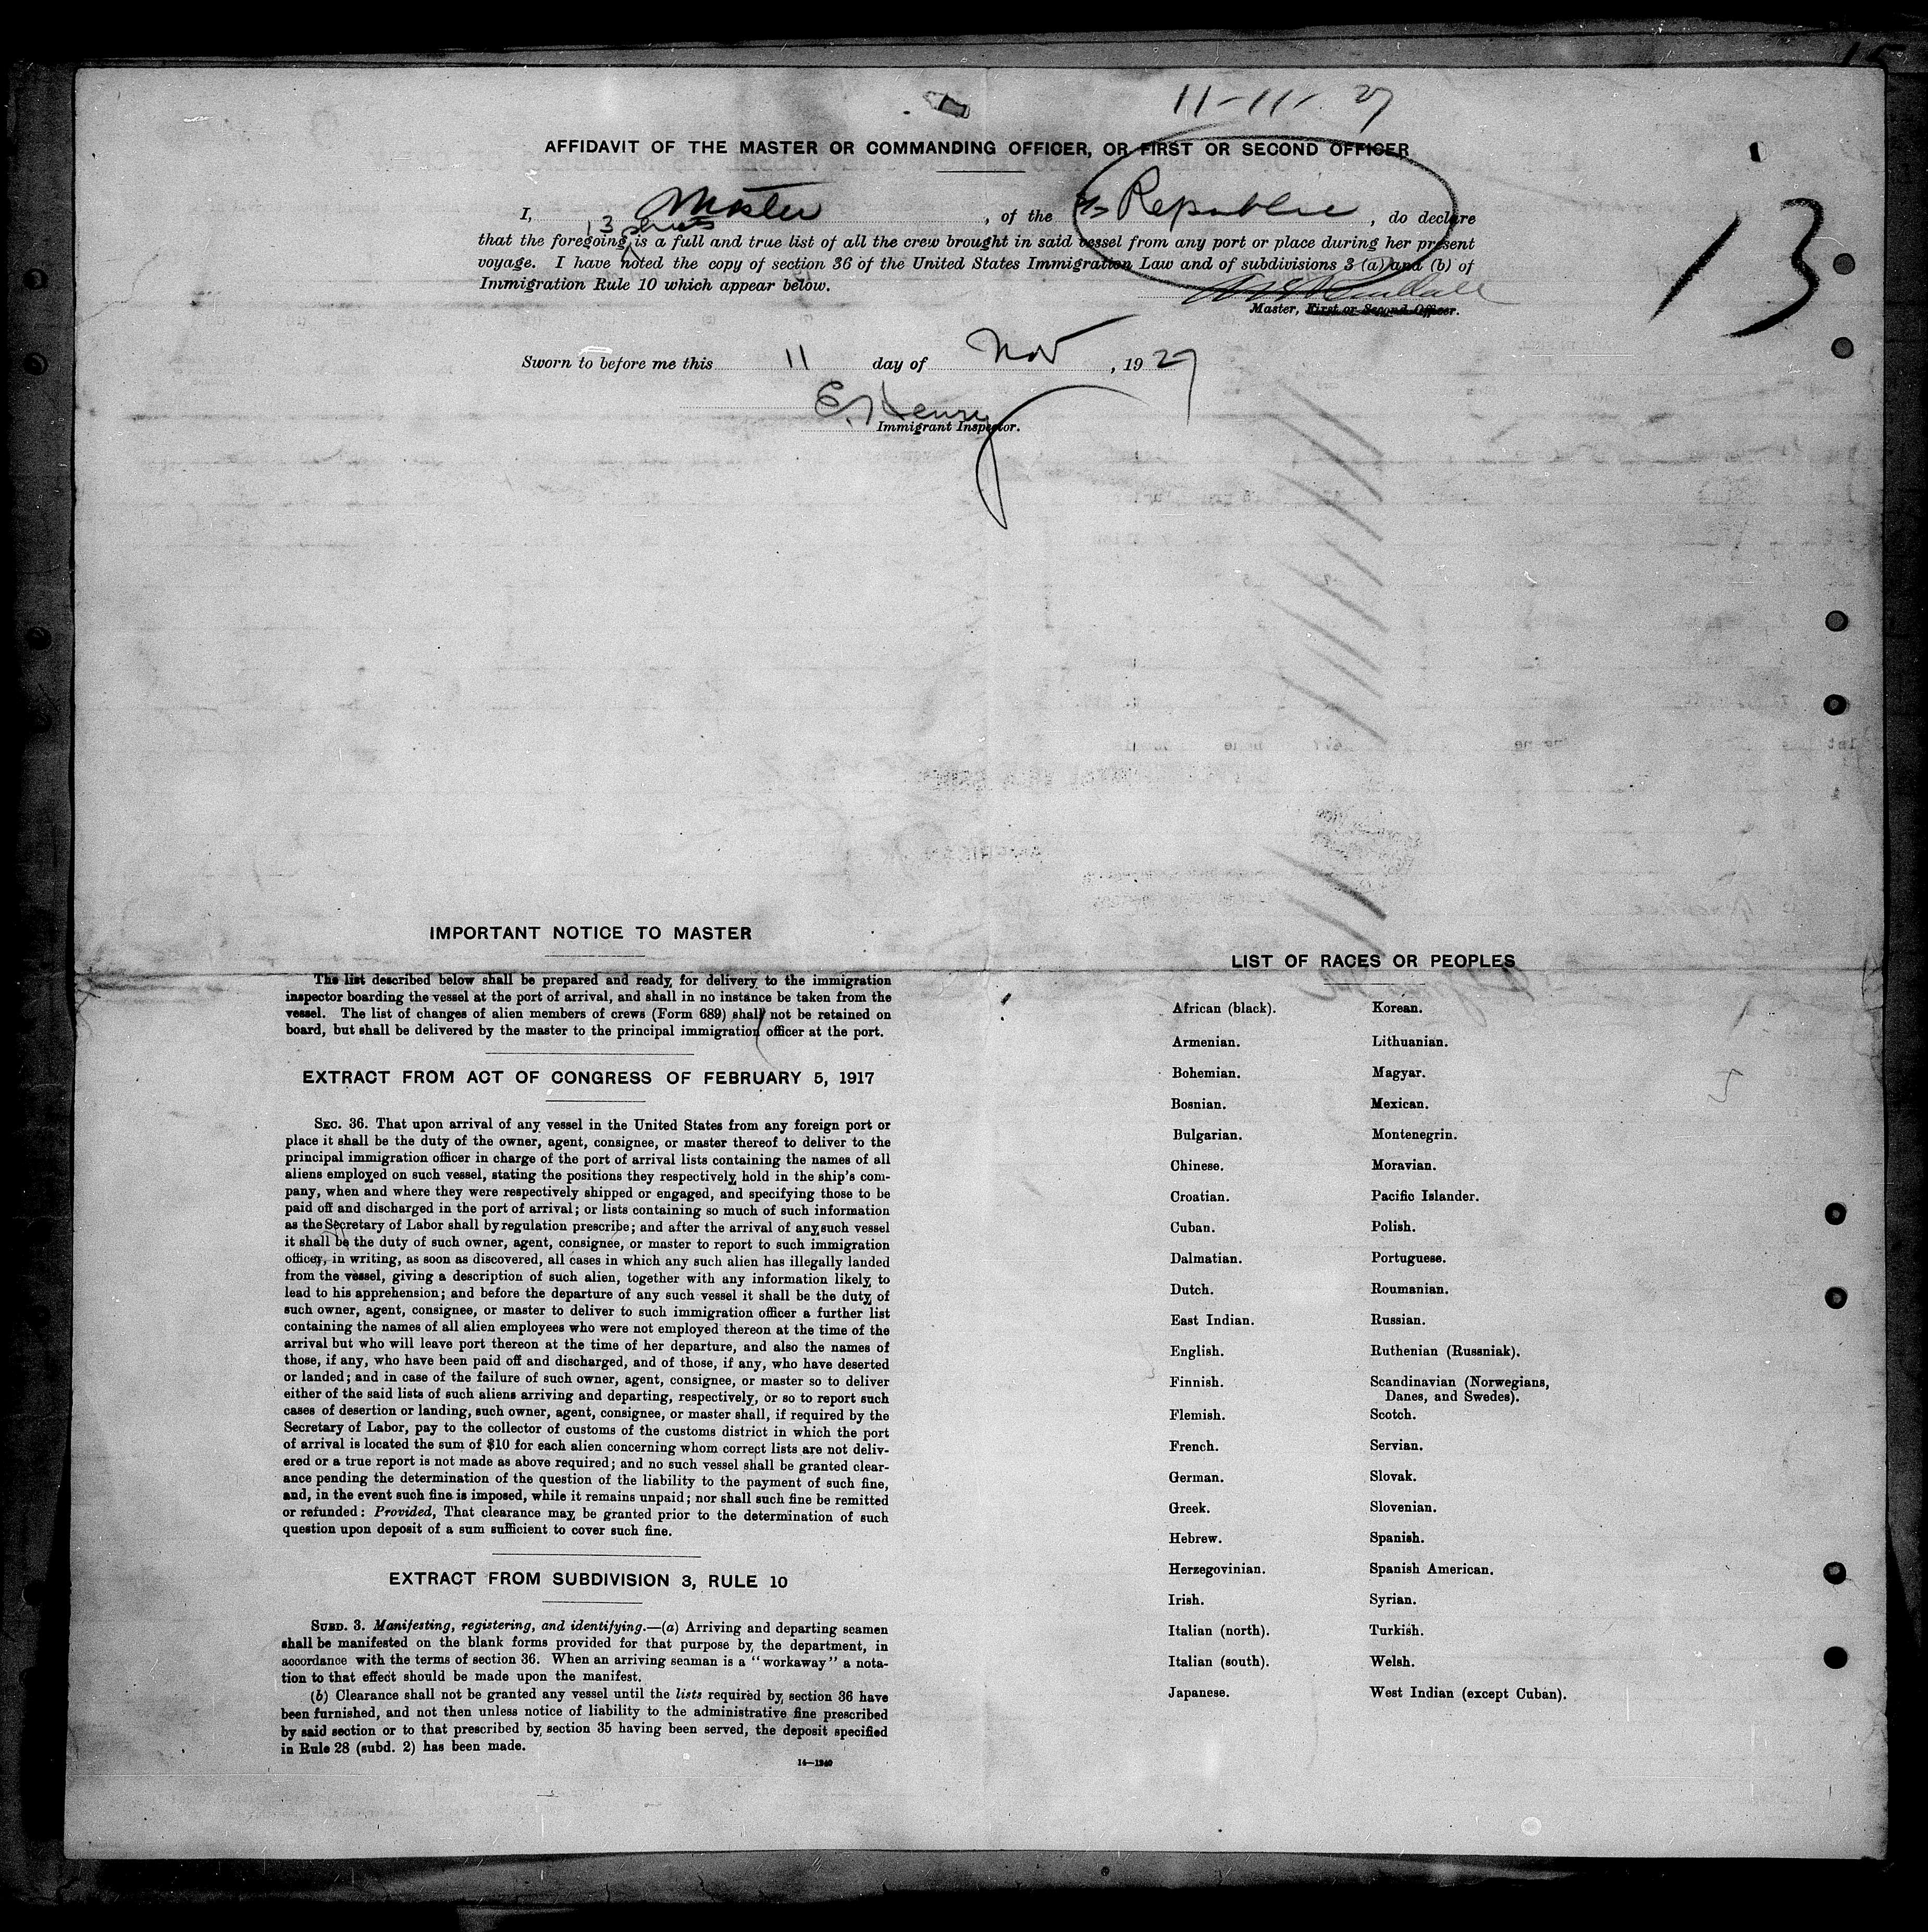 11-11-27
AFFIDAVIT OF THE MASTER OR COMMANDING OFFICER, OR FIRST OR SECOND OFFICER
I, Master, of the SS Republic, do declare
13 sheets
that the foregoing is a full and true list of all the crew brought in said vessel from any port or place during her present
voyage. I have noted the copy of section 36 of the United States Immigration Law and of subdivisions 3 (a) and (b) of
Immigration Rule 10 which appear below.
13
Master, First or Second Officer.
Sworn to before me this 11 day of Nov, 1927
E. Henry
Immigrant Inspector.
IMPORTANT NOTICE TO MASTER
The list described below shall be prepared and ready for delivery to the immigration
inspector boarding the vessel at the port of arrival, and shall in no instance be taken from the
vessel. The list of changes of alien members of crews (Form 689) shall not be retained on
board, but shall be delivered by the master to the principal immigration officer at the port.
EXTRACT FROM ACT OF CONGRESS OF FEBRUARY 5, 1917
SEC. 36. That upon arrival of any vessel in the United States from any foreign port or
place it shall be the duty of the owner, agent, consignee, or master thereof to deliver to the
principal immigration officer in charge of the port of arrival lists containing the names of all
aliens employed on such vessel, stating the positions they respectively hold in the ship's com-
pany, when and where they were respectively shipped or engaged, and specifying those to be
paid off and discharged in the port of arrival; or lists containing so much of such information
as the Secretary of Labor shall by regulation prescribe; and after the arrival of any such vessel
it shall be the duty of such owner, agent, consignee, or master to report to such immigration
officer, in writing, as soon as discovered, all cases in which any such alien has illegally landed
from the vessel, giving a description of such alien, together with any information likely to
lead to his apprehension; and before the departure of any such vessel it shall be the duty of
such owner, agent, consignee, or master to deliver to such immigration officer a further list
containing the names of all alien employees who were not employed thereon at the time of the
arrival but who will leave port thereon at the time of her departure, and also the names of
those, if any, who have been paid off and discharged, and of those, if any, who have deserted
or landed; and in case of the failure of such owner, agent, consignee, or master so to deliver
either of the said lists of such aliens arriving and departing, respectively, or so to report such
cases of desertion or landing, such owner, agent, consignee, or master shall, if required by the
Secretary of Labor, pay to the collector of customs of the customs district in which the port
of arrival is located the sum of $10 for each alien concerning whom correct lists are not deliv-
ered or a true report is not made as above required; and no such vessel shall be granted clear-
ance pending the determination of the question of the liability to the payment of such fine,
and, in the event such fine is imposed, while it remains unpaid; nor shall such fine be remitted
or refunded: Provided, That clearance may be granted prior to the determination of such
question upon deposit of a sum sufficient to cover such fine.
EXTRACT FROM SUBDIVISION 3, RULE 10
SUBD. 3. Manifesting, registering, and identifying.—(a) Arriving and departing seamen
shall be manifested on the blank forms provided for that purpose by the department, in
accordance with the terms of section 36. When an arriving seaman is a "workaway" a nota-
tion to that effect should be made upon the manifest.
(b) Clearance shall not be granted any vessel until the lists required by section 36 have
been furnished, and not then unless notice of liability to the administrative fine prescribed
by said section or to that prescribed by section 35 having been served, the deposit specified
in Rule 28 (subd. 2) has been made.
14—1240
LIST OF RACES OR PEOPLES
African (black).
Armenian.
Bohemian.
Bosnian.
Bulgarian.
Chinese.
Croatian.
Cuban.
Dalmatian.
Dutch.
East Indian.
English.
Finnish.
Flemish.
French.
German.
Greek.
Hebrew.
Herzegovinian.
Irish.
Italian (north).
Italian (south).
Japanese.
Korean.
Lithuanian.
Magyar.
Mexican.
Montenegrin.
Moravian.
Pacific Islander.
Polish.
Portuguese.
Roumanian.
Russian.
Ruthenian (Russniak).
Scandinavian (Norwegians,
Danes, and Swedes).
Scotch.
Servian.
Slovak.
Slovenian.
Spanish.
Spanish American.
Syrian.
Turkish.
Welsh.
West Indian (except Cuban).